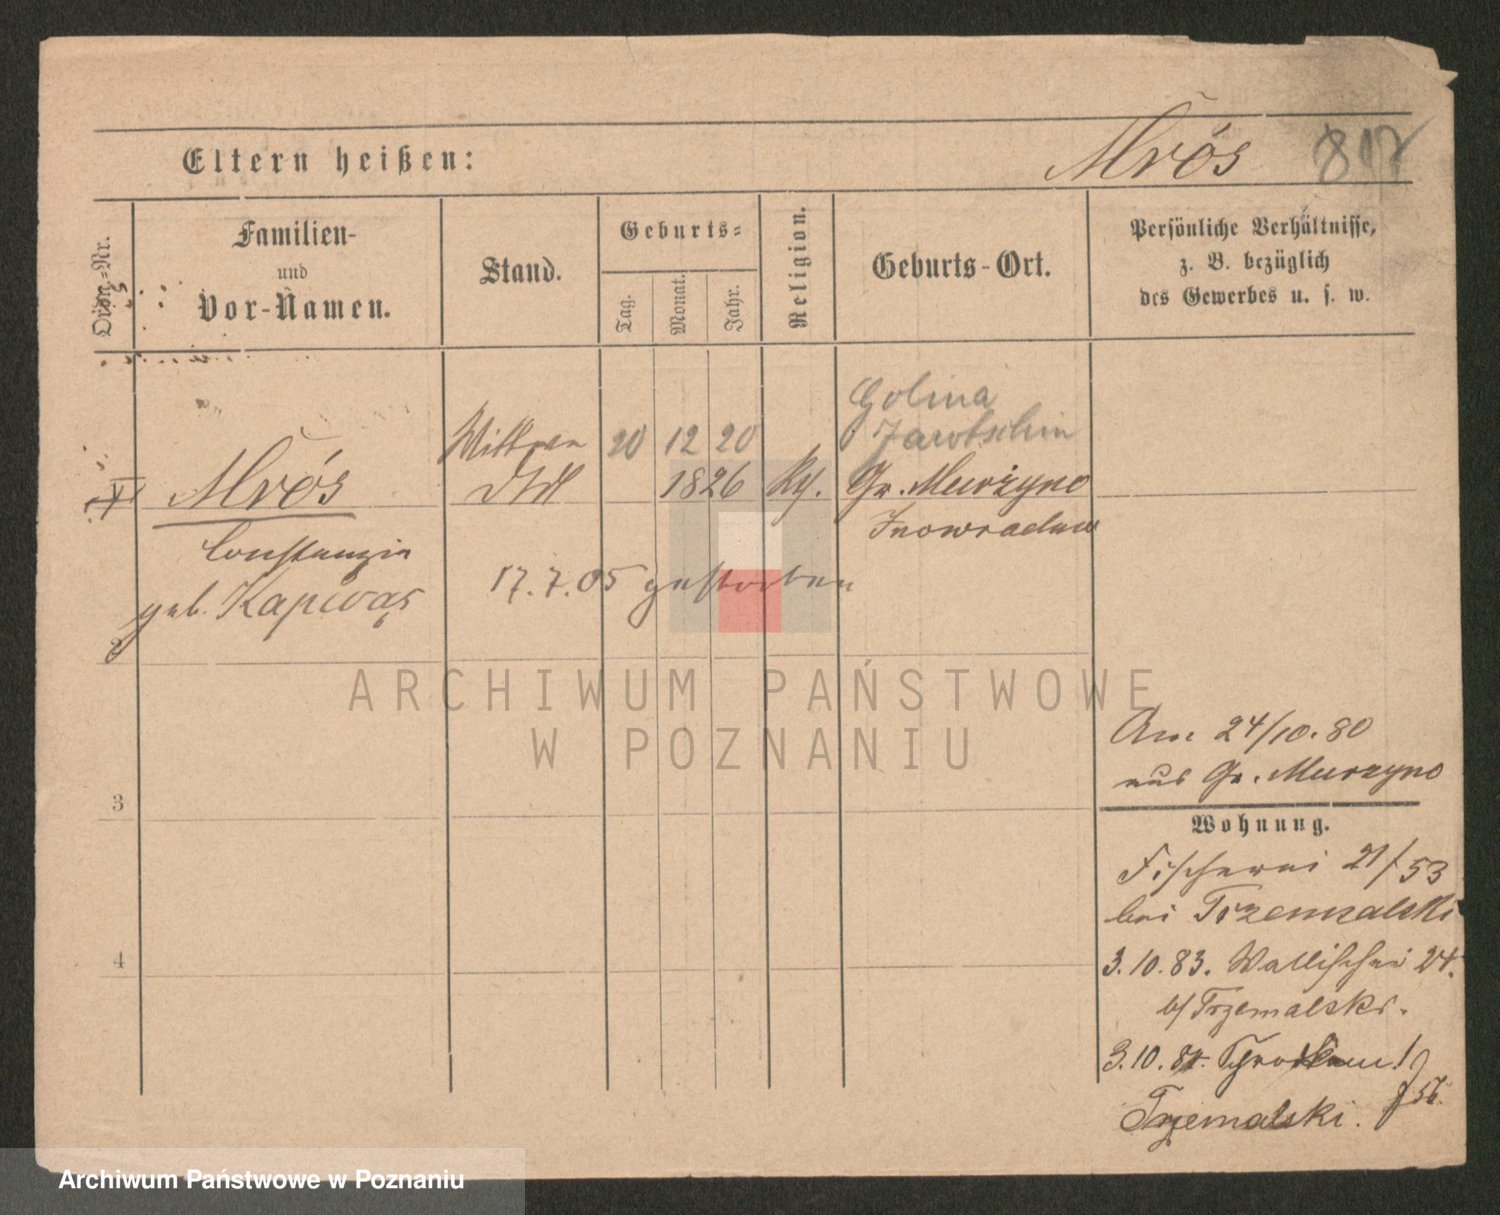 Eltern heißen:
Mrós
817
Ordn.-Nr.
Familien-
und
Vor-Namen.
Stand.
Geburts-
Tag.
Monat.
Jahr.
Religion.
Geburts-Ort.
Persönliche Verhältnisse,
z. B. bezüglich
des Gewerbes u. s. w.
Golina
Jarotschin
Wittwe 20 12 20
Mrós 1826 Kth. Gr. Murzyno
Constanzia Inowraclaw
geb. Kapwąs 17.7.05 gestorben
2
ARCHIWUM PAŃSTWOWE
W POZNANIU
Am 24/10.80
aus Gr. Murzyno
3
Wohnung.
Fischerei 21/53
bei Trzemzalski
4
3.10.83. Wallischei 24.
b/ Trzemalski.
3.10.84.
Trzemalski.
Archiwum Państwowe w Poznaniu